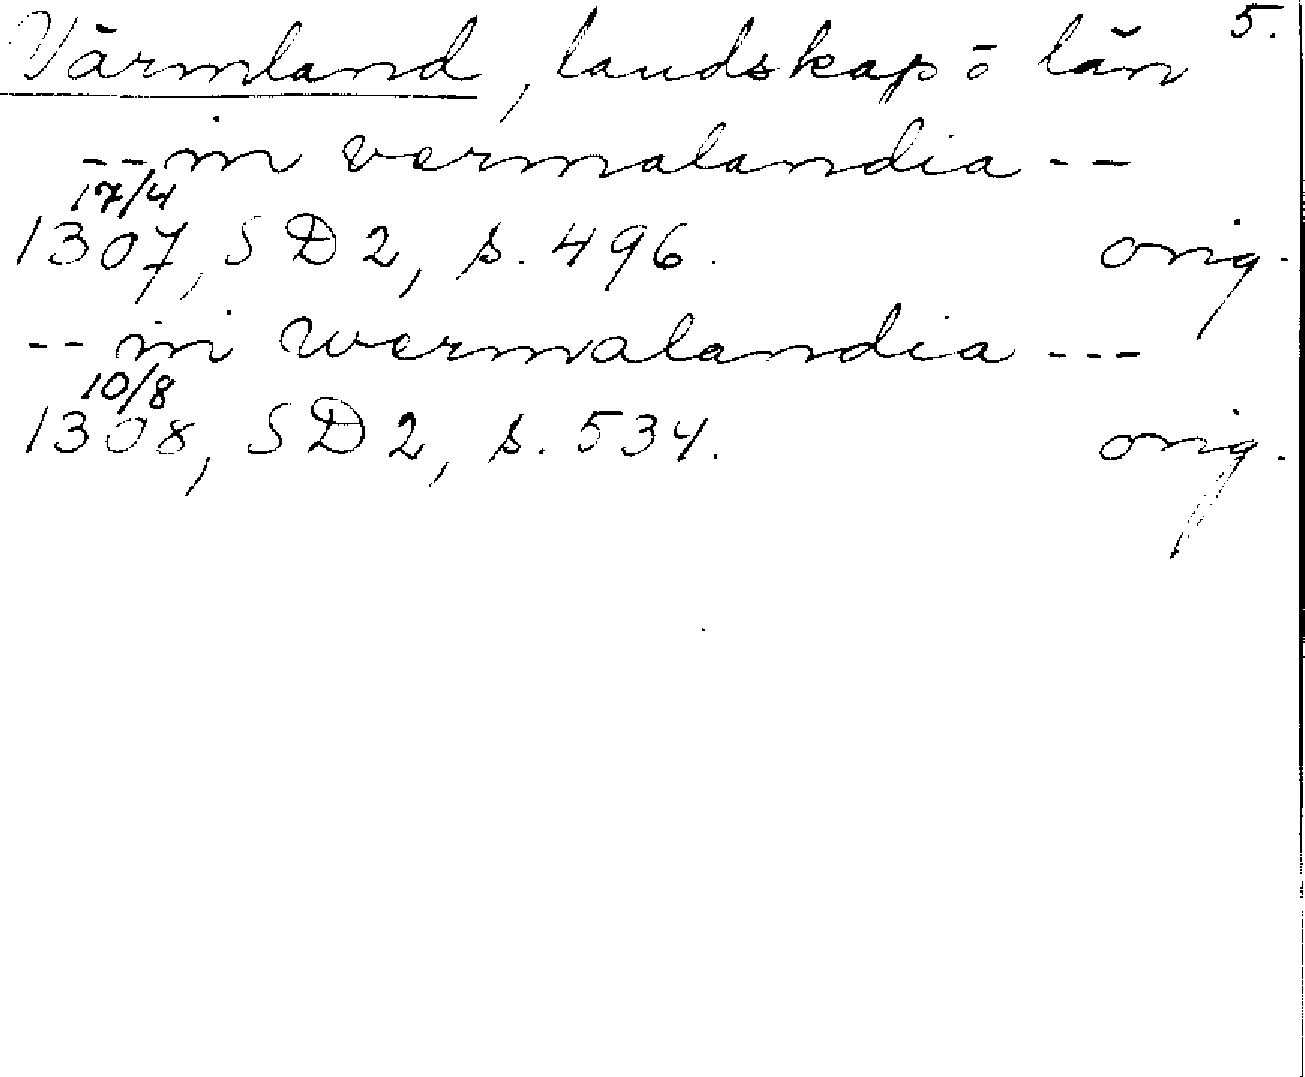 5.
Värmland, landskap o län
-- in vermalandia --
17/4
1307, SD2, s. 496. orig.
-- in wermalandia ---
10/8
1308, SD2, s. 534. orig.